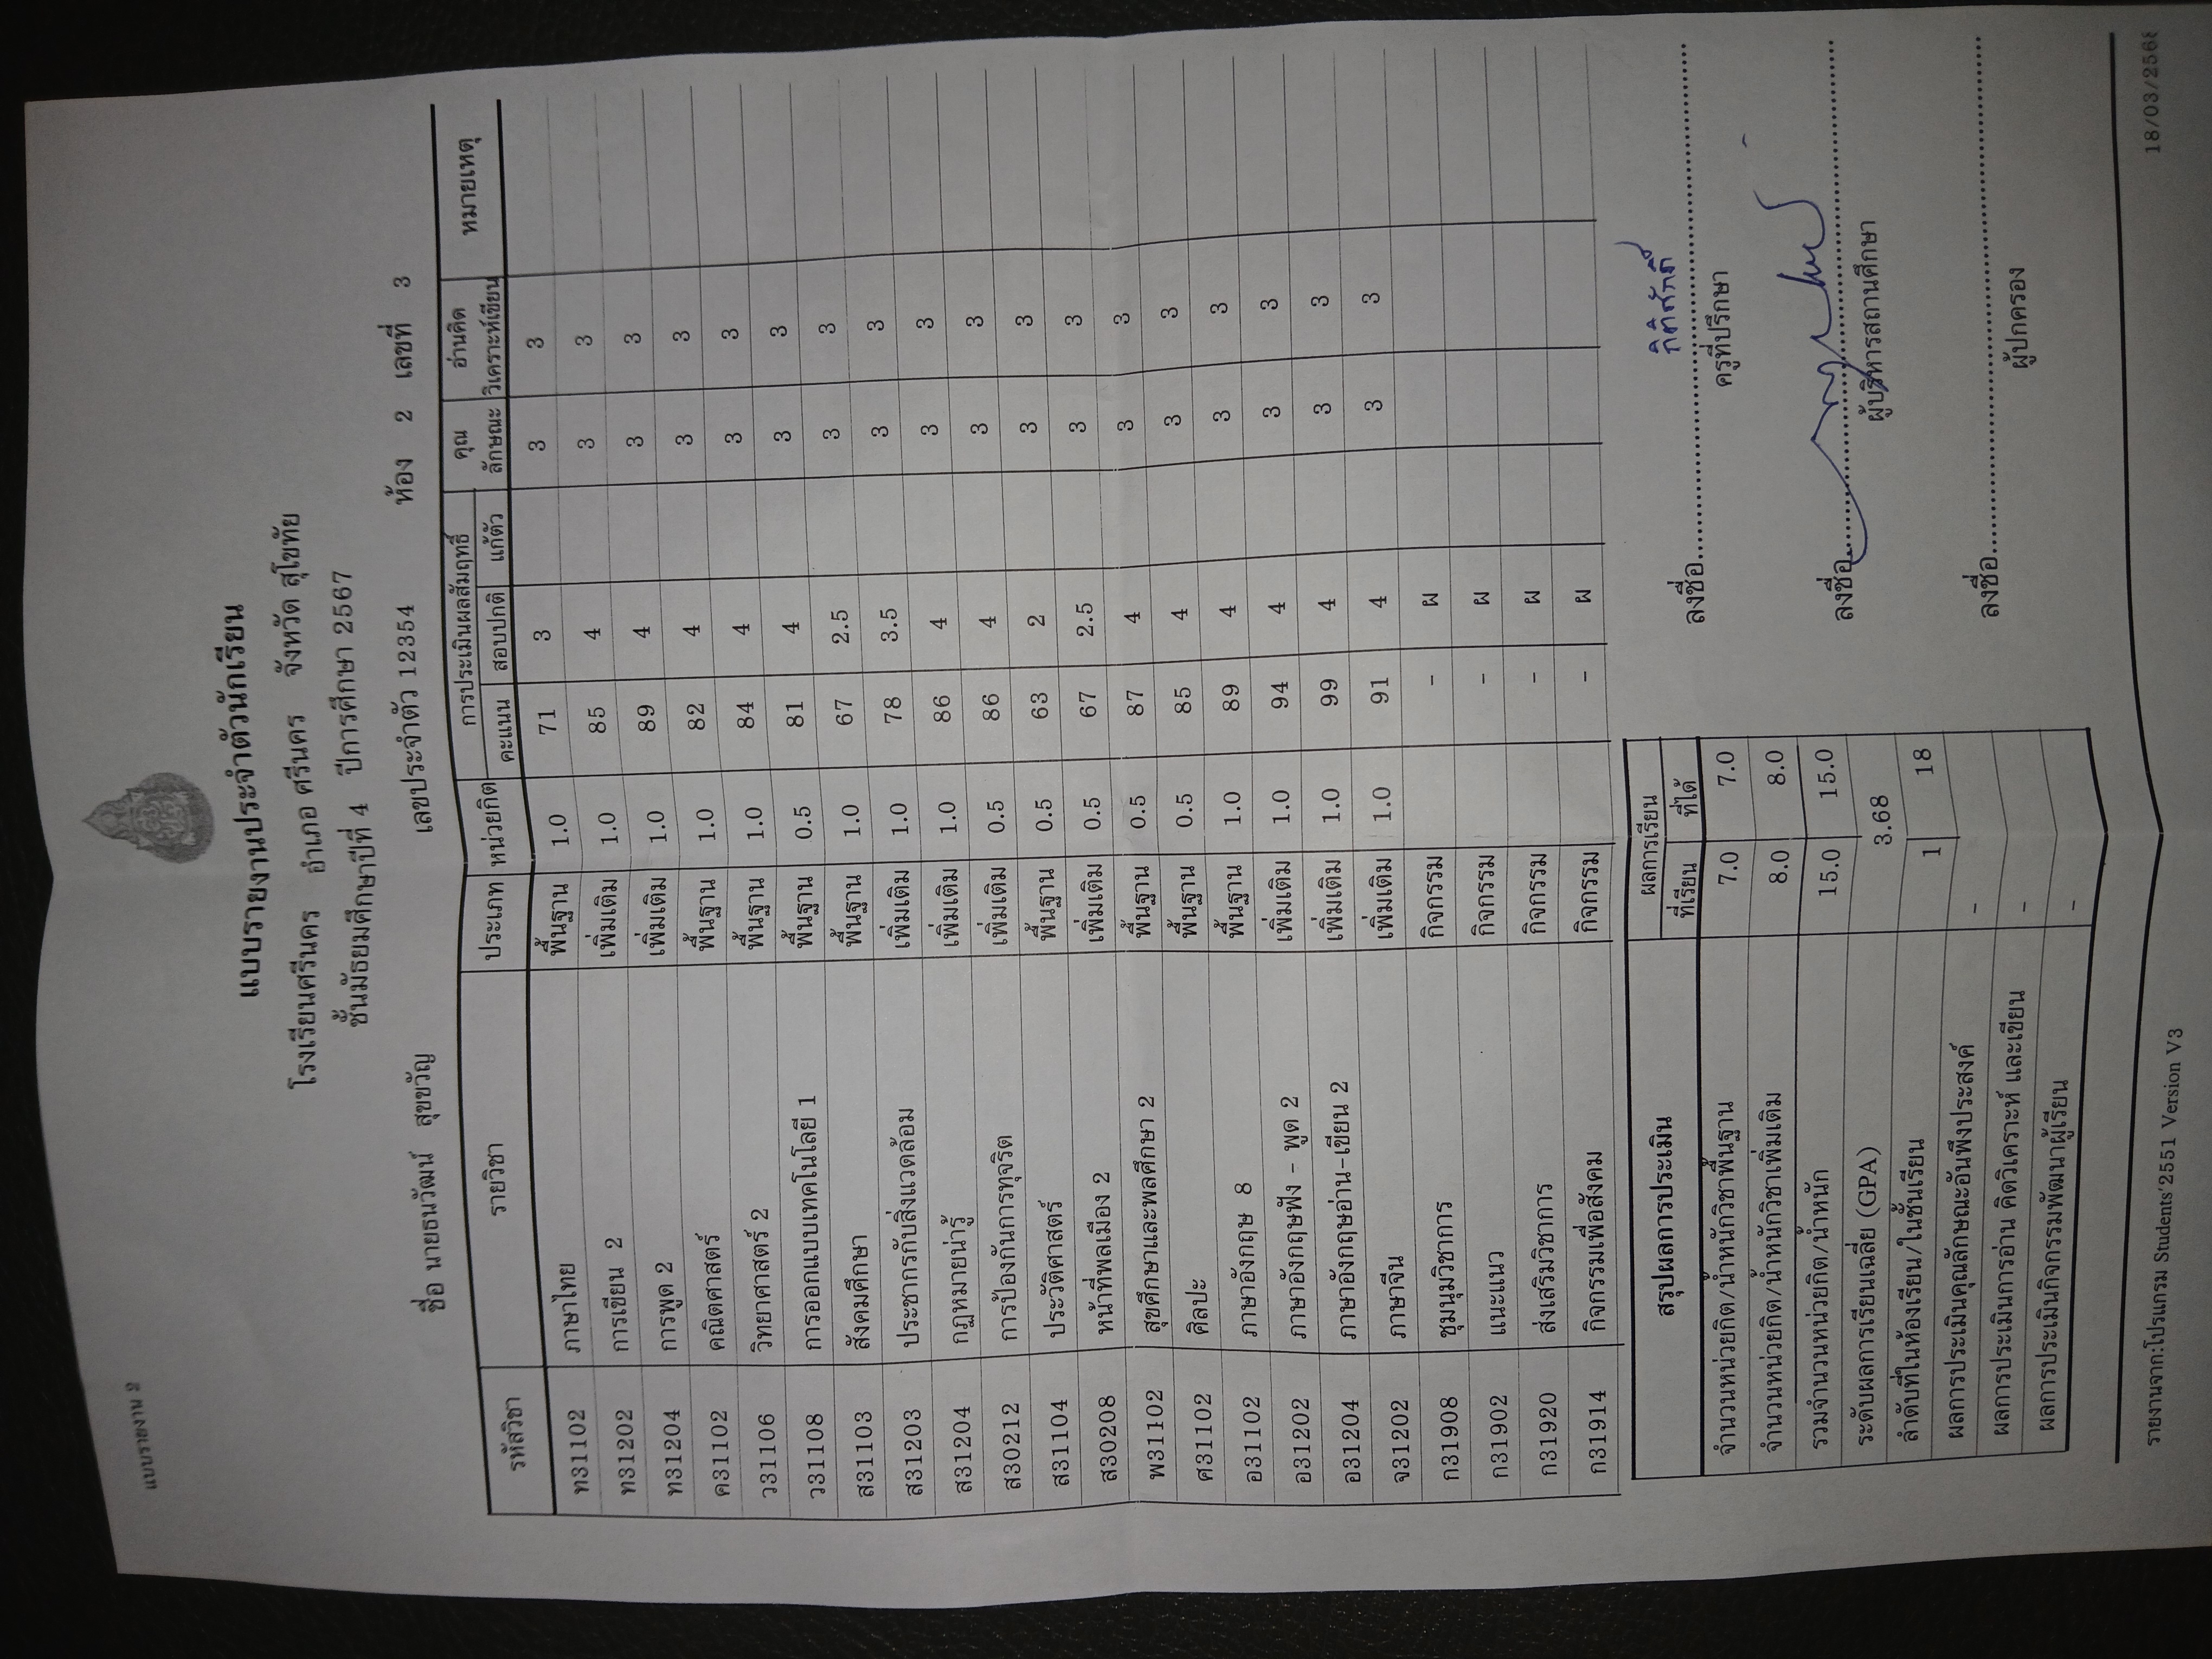 แบบรายงาน 2
แบบรายงานประจำตัวนักเรียน
โรงเรียนศรีนคร อำเภอ ศรีนคร จังหวัด สุโขทัย
ชั้นมัธยมศึกษาปีที่ 4 ปีการศึกษา 2567
ชื่อ นายธนวัฒน์ สุขขวัญ เลขประจำตัว 12354 ห้อง 2 เลขที่ 3
รหัสวิชา รายวิชา ประเภท หน่วยกิต การประเมินผลสัมฤทธิ์ คุณลักษณะ อ่านคิดวิเคราะห์เขียน หมายเหตุ
คะแนน สอบปกติ แก้ตัว
ท31102 ภาษาไทย พื้นฐาน 1.0 71 3 3 3
ท31202 การเขียน 2 เพิ่มเติม 1.0 85 4 3 3
ท31204 การพูด 2 เพิ่มเติม 1.0 89 4 3 3
ค31102 คณิตศาสตร์ พื้นฐาน 1.0 82 4 3 3
ว31106 วิทยาศาสตร์ 2 พื้นฐาน 1.0 84 4 3 3
ว31108 การออกแบบเทคโนโลยี 1 พื้นฐาน 0.5 81 4 3 3
ส31103 สังคมศึกษา พื้นฐาน 1.0 67 2.5 3 3
ส31203 ประชากรกับสิ่งแวดล้อม เพิ่มเติม 1.0 78 3.5 3 3
ส31204 กฏหมายน่ารู้ เพิ่มเติม 1.0 86 4 3 3
ส30212 การป้องกันการทุจริต เพิ่มเติม 0.5 86 4 3 3
ส31104 ประวัติศาสตร์ พื้นฐาน 0.5 63 2 3 3
ส30208 หน้าที่พลเมือง 2 เพิ่มเติม 0.5 67 2.5 3 3
พ31102 สุขศึกษาและพลศึกษา 2 พื้นฐาน 0.5 87 4 3 3
ศ31102 ศิลปะ พื้นฐาน 0.5 85 4 3 3
อ31102 ภาษาอังกฤษ 8 พื้นฐาน 1.0 89 4 3 3
อ31202 ภาษาอังกฤษฟัง - พูด 2 เพิ่มเติม 1.0 94 4 3 3
อ31204 ภาษาอังกฤษอ่าน-เขียน 2 เพิ่มเติม 1.0 99 4 3 3
จ31202 ภาษาจีน เพิ่มเติม 1.0 91 4 3 3
ก31908 ชุมนุมวิชาการ กิจกรรม - ผ
ก31902 แนะแนว กิจกรรม - ผ
ก31920 ส่งเสริมวิชาการ กิจกรรม - ผ
ก31914 กิจกรรมเพื่อสังคม กิจกรรม - ผ
สรุปผลการประเมิน ผลการเรียน
ที่เรียน ที่ได้
จำนวนหน่วยกิต/น้ำหนักวิชาพื้นฐาน 7.0 7.0
จำนวนหน่วยกิต/น้ำหนักวิชาเพิ่มเติม 8.0 8.0
รวมจำนวนหน่วยกิต/น้ำหนัก 15.0 15.0
ระดับผลการเรียนเฉลี่ย (GPA) 3.68
ลำดับที่ในห้องเรียน/ในชั้นเรียน 1 18
ผลการประเมินคุณลักษณะอันพึงประสงค์ -
ผลการประเมินการอ่าน คิดวิเคราะห์ และเขียน -
ผลการประเมินกิจกรรมพัฒนาผู้เรียน -
ลงชื่อ กิตติศักดิ์
ครูที่ปรึกษา
ลงชื่อ
ผู้บริหารสถานศึกษา
ลงชื่อ
ผู้ปกครอง
รายงานจาก:โปรแกรม Students'2551 Version V3 18/03/2568